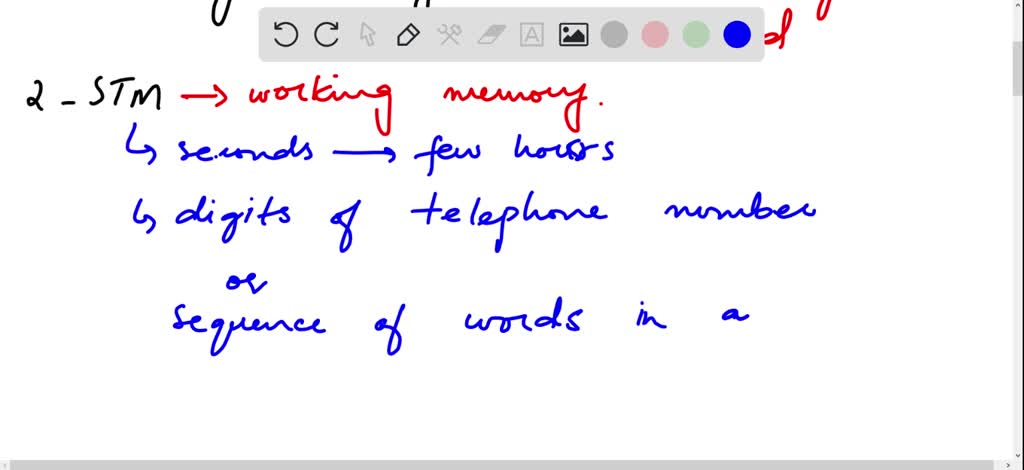 2 - STM → working memory.
↳ seconds → few hours
↳ digits of telephone number
or
sequence of words in a